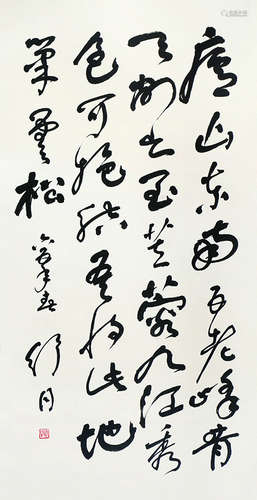 廬山东南五老峰青
天削出金芙蓉九江秀
色可揽结吾将此地
巢雲松